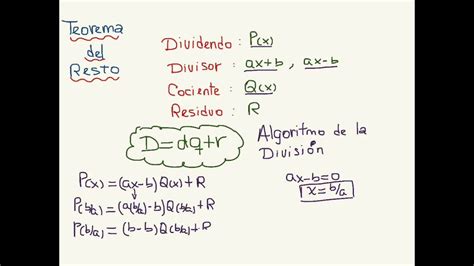 Teorema
del
Resto
Dividendo : P(x)
Divisor : ax+b , ax-b
Cociente : Q(x)
Residuo : R
D=dq+r
Algoritmo de la
División
ax-b=0
x=b/a
P(x) = (ax-b)Q(x)+R
P(b/a) = (a(b/a)-b)Q(b/a)+R
P(b/a) = (b-b)Q(b/a)+R